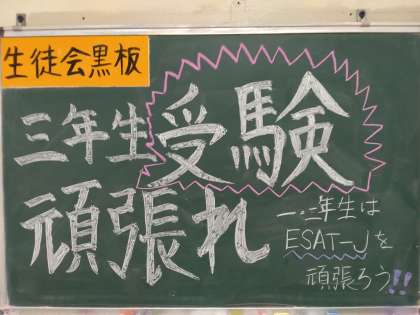 生徒会黒板
三年生受験
頑張れ
一、二年生は
ESAT-Jを
頑張ろう!!